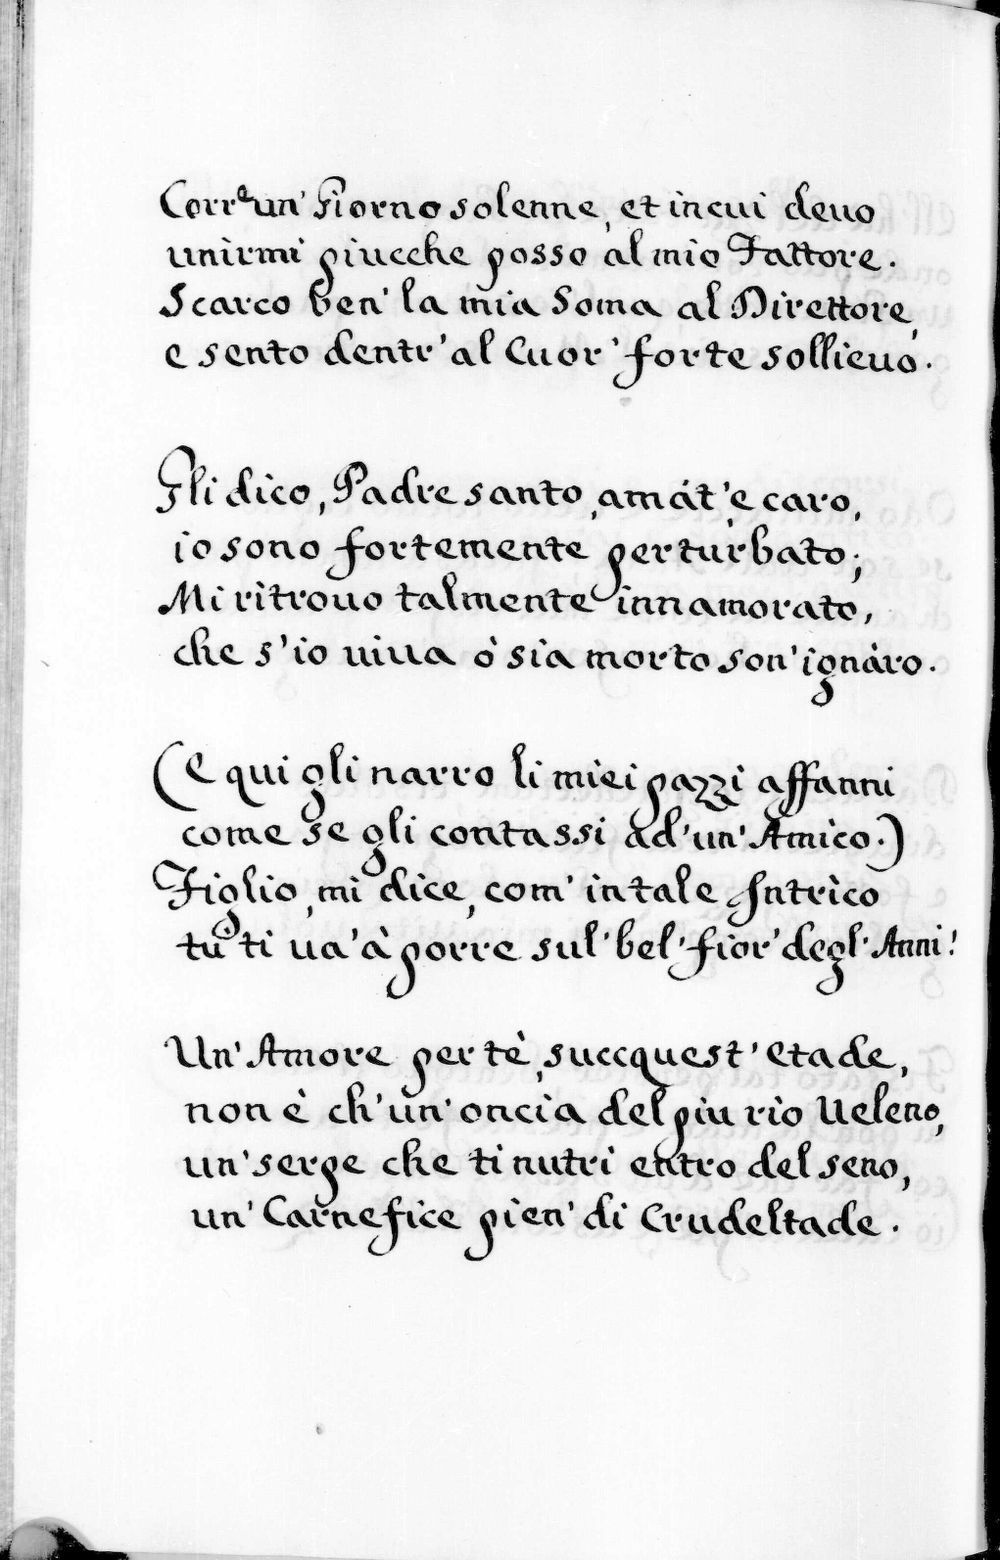 Corr'un' Giorno solenne, et in cui deuo
unirmi piucche posso al mio Fattore.
Scarco ben' la mia Soma al Direttore,
e sento dentr' al Cuor' forte sollieuo.
Gli dico, Padre santo, amát'e caro,
io sono fortemente perturbato;
Mi ritrouo talmente innamorato,
che s'io uiua ò sia morto son' ignàro.
(E qui gli narro li miei pazzi affanni
come se gli contassi ad' un' Amico.)
Figlio, mi dice, com' in tale Intrico
tù ti ua' à porre sul' bel' fior' degl' Anni!
Un' Amore per tè, succquest' etade,
non è ch' un' oncia del piu rio Ueleno,
un' serpe che ti nutri entro del seno,
un' Carnefice pien' di Crudeltade.